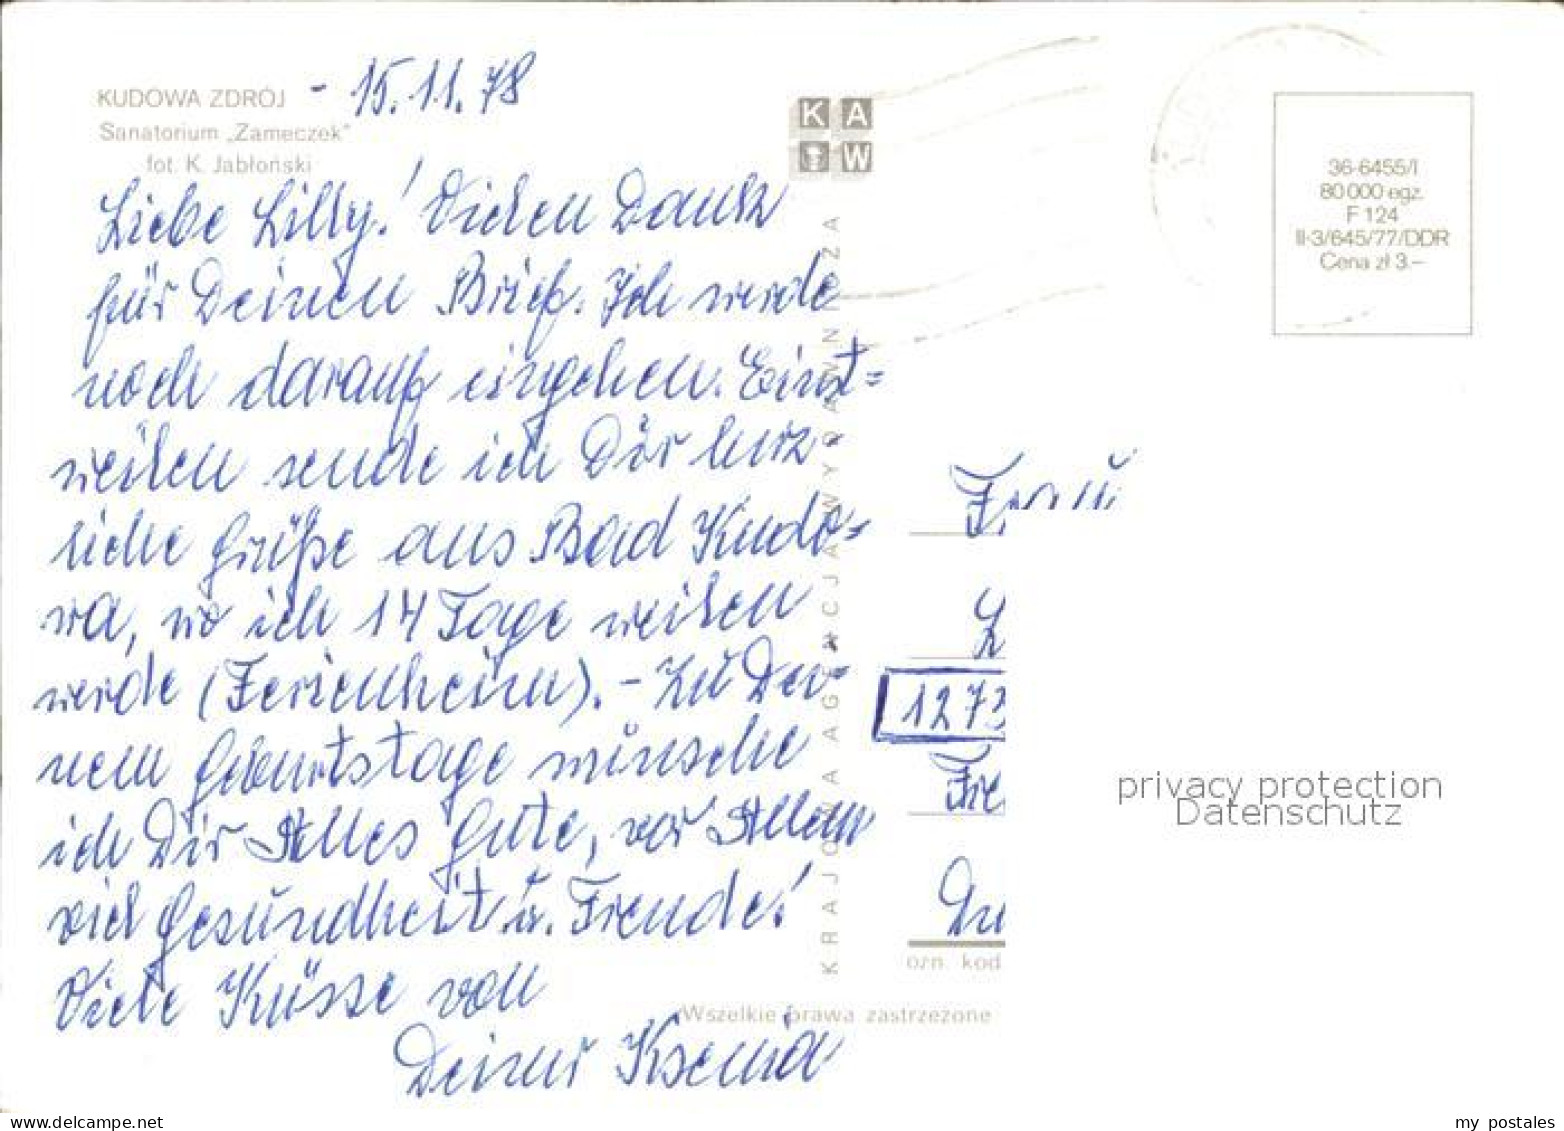 KUDOWA ZDRÓJ - 15.11.78
Sanatorium „Zameczek"
fot. K. Jabłoński
Liebe Lilly! Vielen Dank
für Deinen Brief. Ich werde
noch darauf eingehen. Einst=
weilen sende ich Dir herz-
liche Grüße aus Bad Kudo=
wa, wo ich 14 Tage weilen
werde (Ferienheim). - Zu Dei=
nem Geburtstage wünsche
ich Dir Alles Gute, vor Allem
viel Gesundheit u. Freude!
Viele Küsse von
Deiner Ksenia
K A
W
KRAJOWA AGENCJA WYDAWNICZA
36-6455/I
80 000 egz.
F 124
II-3/645/77/DDR
Cena zł 3.—
Frau
1273
ozn. kod
Wszelkie prawa zastrzeżone
privacy protection
Datenschutz
delcampe.net
my postales